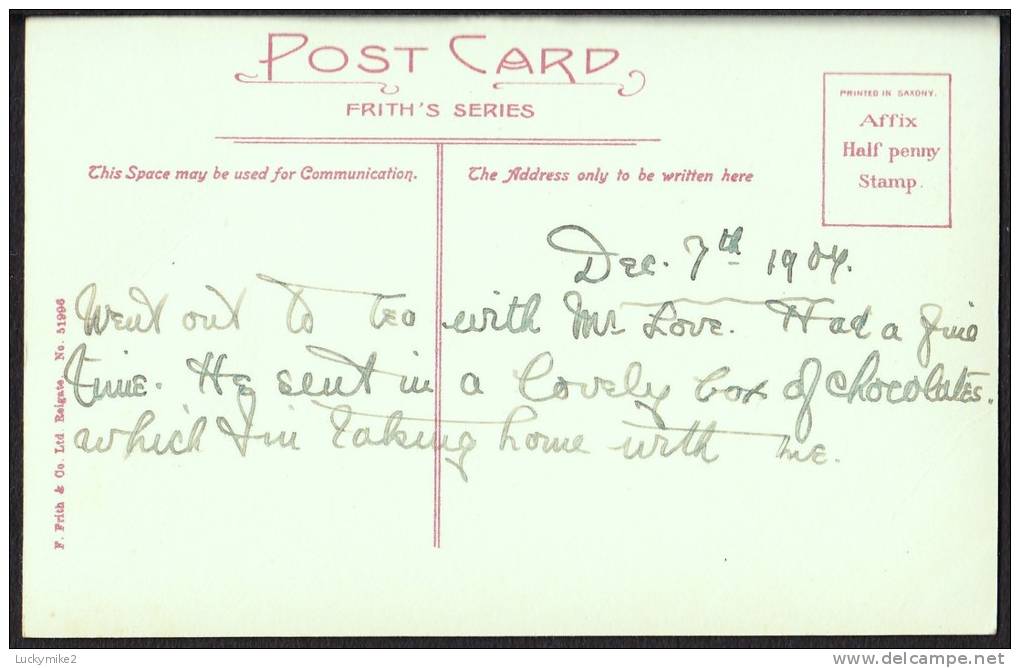 POST CARD
FRITH'S SERIES
PRINTED IN SAXONY.
Affix
Half penny
Stamp.
This Space may be used for Communication.
The Address only to be written here
Dec. 7th 1904.
Went out to tea with Mr Love. Had a fine
time. He sent in a lovely box of chocolates.
which I'm taking home with me.
F. Frith & Co. Ltd. Reigate. No. 51996
Luckymike2
delcampe.net